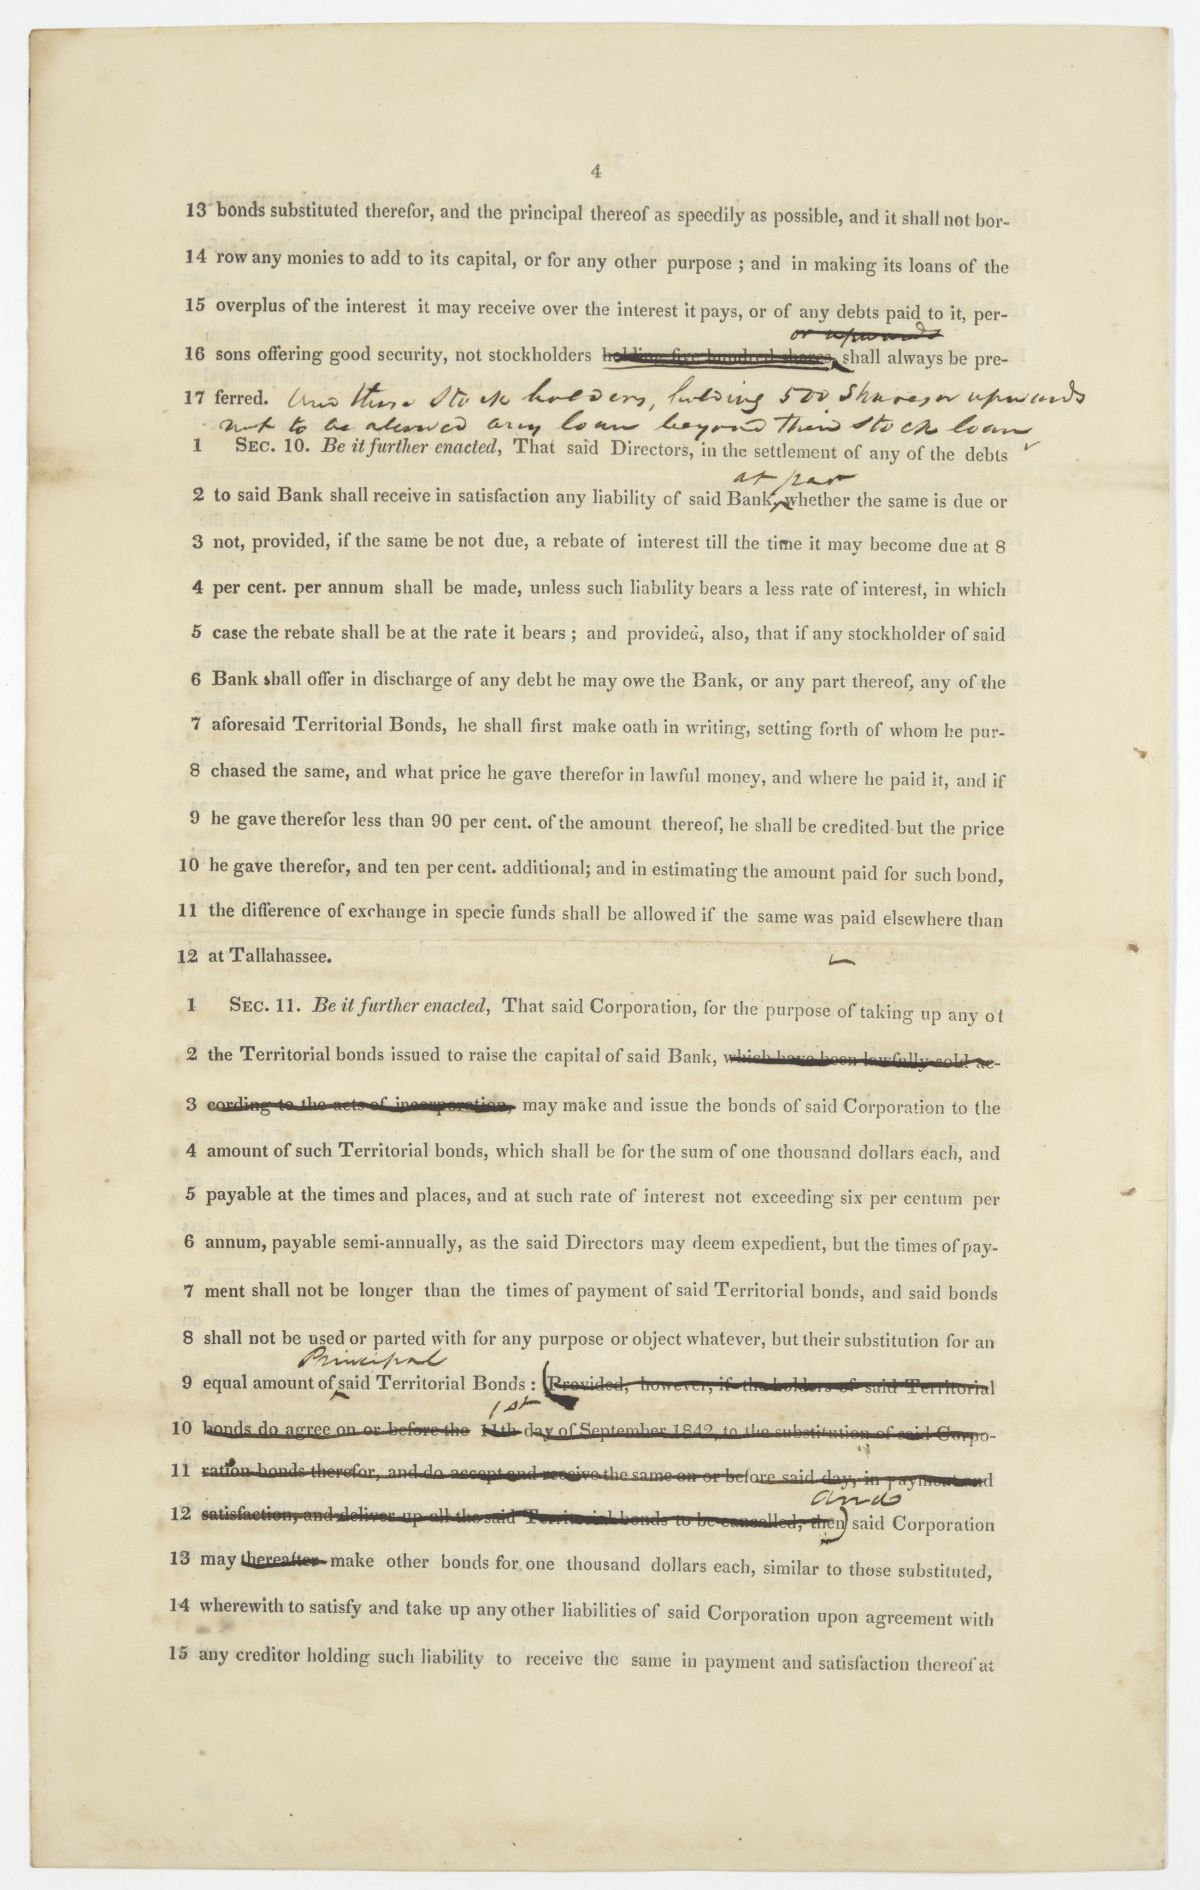 4
13 bonds substituted therefor, and the principal thereof as speedily as possible, and it shall not bor-
14 row any monies to add to its capital, or for any other purpose ; and in making its loans of the
15 overplus of the interest it may receive over the interest it pays, or of any debts paid to it, per-
or upwards
16 sons offering good security, not stockholders holding five hundred shares, shall always be pre-
17 ferred. And those Stock holders, holding 500 Shares or upwards
not to be allowed any loan beyond their stock loan
1 SEC. 10. Be it further enacted, That said Directors, in the settlement of any of the debts
at par
2 to said Bank shall receive in satisfaction any liability of said Bank, whether the same is due or
3 not, provided, if the same be not due, a rebate of interest till the time it may become due at 8
4 per cent. per annum shall be made, unless such liability bears a less rate of interest, in which
5 case the rebate shall be at the rate it bears ; and provided, also, that if any stockholder of said
6 Bank shall offer in discharge of any debt he may owe the Bank, or any part thereof, any of the
7 aforesaid Territorial Bonds, he shall first make oath in writing, setting forth of whom he pur-
8 chased the same, and what price he gave therefor in lawful money, and where he paid it, and if
9 he gave therefor less than 90 per cent. of the amount thereof, he shall be credited but the price
10 he gave therefor, and ten per cent. additional; and in estimating the amount paid for such bond,
11 the difference of exchange in specie funds shall be allowed if the same was paid elsewhere than
12 at Tallahassee.
1 SEC. 11. Be it further enacted, That said Corporation, for the purpose of taking up any of
2 the Territorial bonds issued to raise the capital of said Bank, which have been lawfully sold ac-
3 cording to the acts of incorporation, may make and issue the bonds of said Corporation to the
4 amount of such Territorial bonds, which shall be for the sum of one thousand dollars each, and
5 payable at the times and places, and at such rate of interest not exceeding six per centum per
6 annum, payable semi-annually, as the said Directors may deem expedient, but the times of pay-
7 ment shall not be longer than the times of payment of said Territorial bonds, and said bonds
8 shall not be used or parted with for any purpose or object whatever, but their substitution for an
Principal
9 equal amount of said Territorial Bonds : (Provided, however, if the holders of said Territorial
1st
10 bonds do agree on or before the 11th day of September 1842, to the substitution of said Corpo-
11 ration bonds therefor, and do accept and receive the same on or before said day, in payment and
and
12 satisfaction, and deliver up all the said Territorial bonds to be cancelled, then) said Corporation
13 may thereafter make other bonds for one thousand dollars each, similar to those substituted,
14 wherewith to satisfy and take up any other liabilities of said Corporation upon agreement with
15 any creditor holding such liability to receive the same in payment and satisfaction thereof at